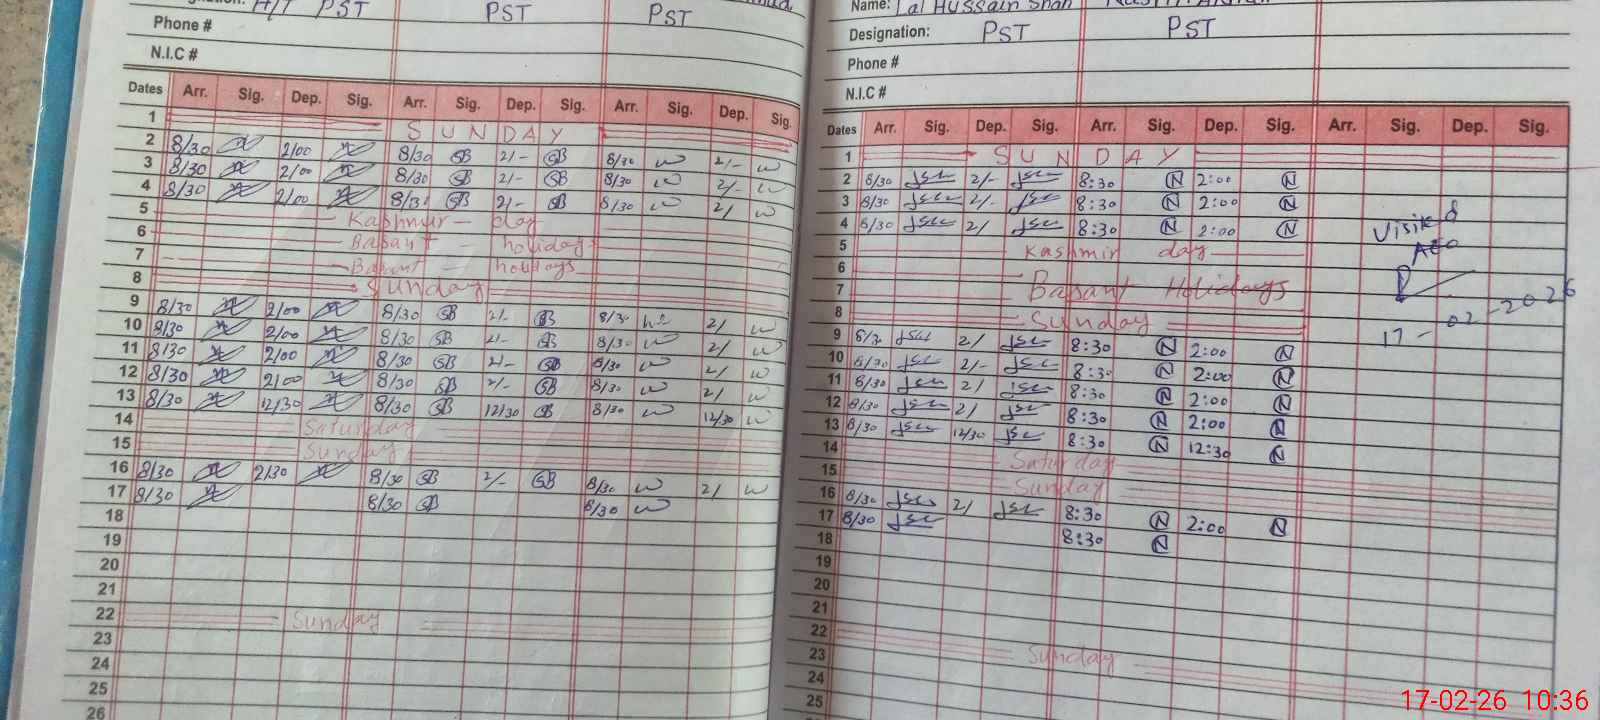 A/T PST PST PST
Phone #
N.I.C #
Dates Arr. Sig. Dep. Sig. Arr. Sig. Dep. Sig. Arr. Sig. Dep. Sig.
1 SUNDAY
2 8/30 2/00 8/30 GB 2/- GB 8/30 2/-
3 8/30 2/00 8/30 GB 2/- GB 8/30 2/-
4 8/30 2/00 8/30 GB 2/- GB 8/30 2/
5 Kashmir day
6 Basant holidays
7 Basant holidays
8 Sunday
9 8/30 2/00 8/30 GB 2/- GB 8/30 2/
10 8/30 2/00 8/30 GB 2/- GB 8/30 2/
11 8/30 2/00 8/30 GB 2/- GB 8/30 2/
12 8/30 2/00 8/30 GB 2/- GB 8/30 2/
13 8/30 12/30 8/30 GB 12/30 GB 8/30 12/30
14 Saturday
15 Sunday
16 8/30 2/30 8/30 GB 2/- GB 8/30 2/
17 8/30 8/30 GB 8/30
18
19
20
21
22 Sunday
23
24
25
26
Name: Lal Hussain Shah
Designation: PST PST
Phone #
N.I.C #
Dates Arr. Sig. Dep. Sig. Arr. Sig. Dep. Sig. Arr. Sig. Dep. Sig.
1 SUNDAY
2 8/30 2/- 8:30 N 2:00 N
3 8/30 2/- 8:30 N 2:00 N
4 8/30 2/ 8:30 N 2:00 N
5 Kashmir day
6
7 Basant Holidays
8 Sunday
9 8/30 2/ 8:30 N 2:00 N
10 8/30 2/- 8:30 N 2:00 N
11 8/30 2/ 8:30 N 2:00 N
12 8/30 2/ 8:30 N 2:00 N
13 8/30 12/30 8:30 N 12:30 N
14 Saturday
15 Sunday
16 8/30 2/ 8:30 N 2:00 N
17 8/30 8:30 N
18
19
20
21
22
23 Sunday
24
25
Visited
AEO
17-02-2026
17-02-26 10:36